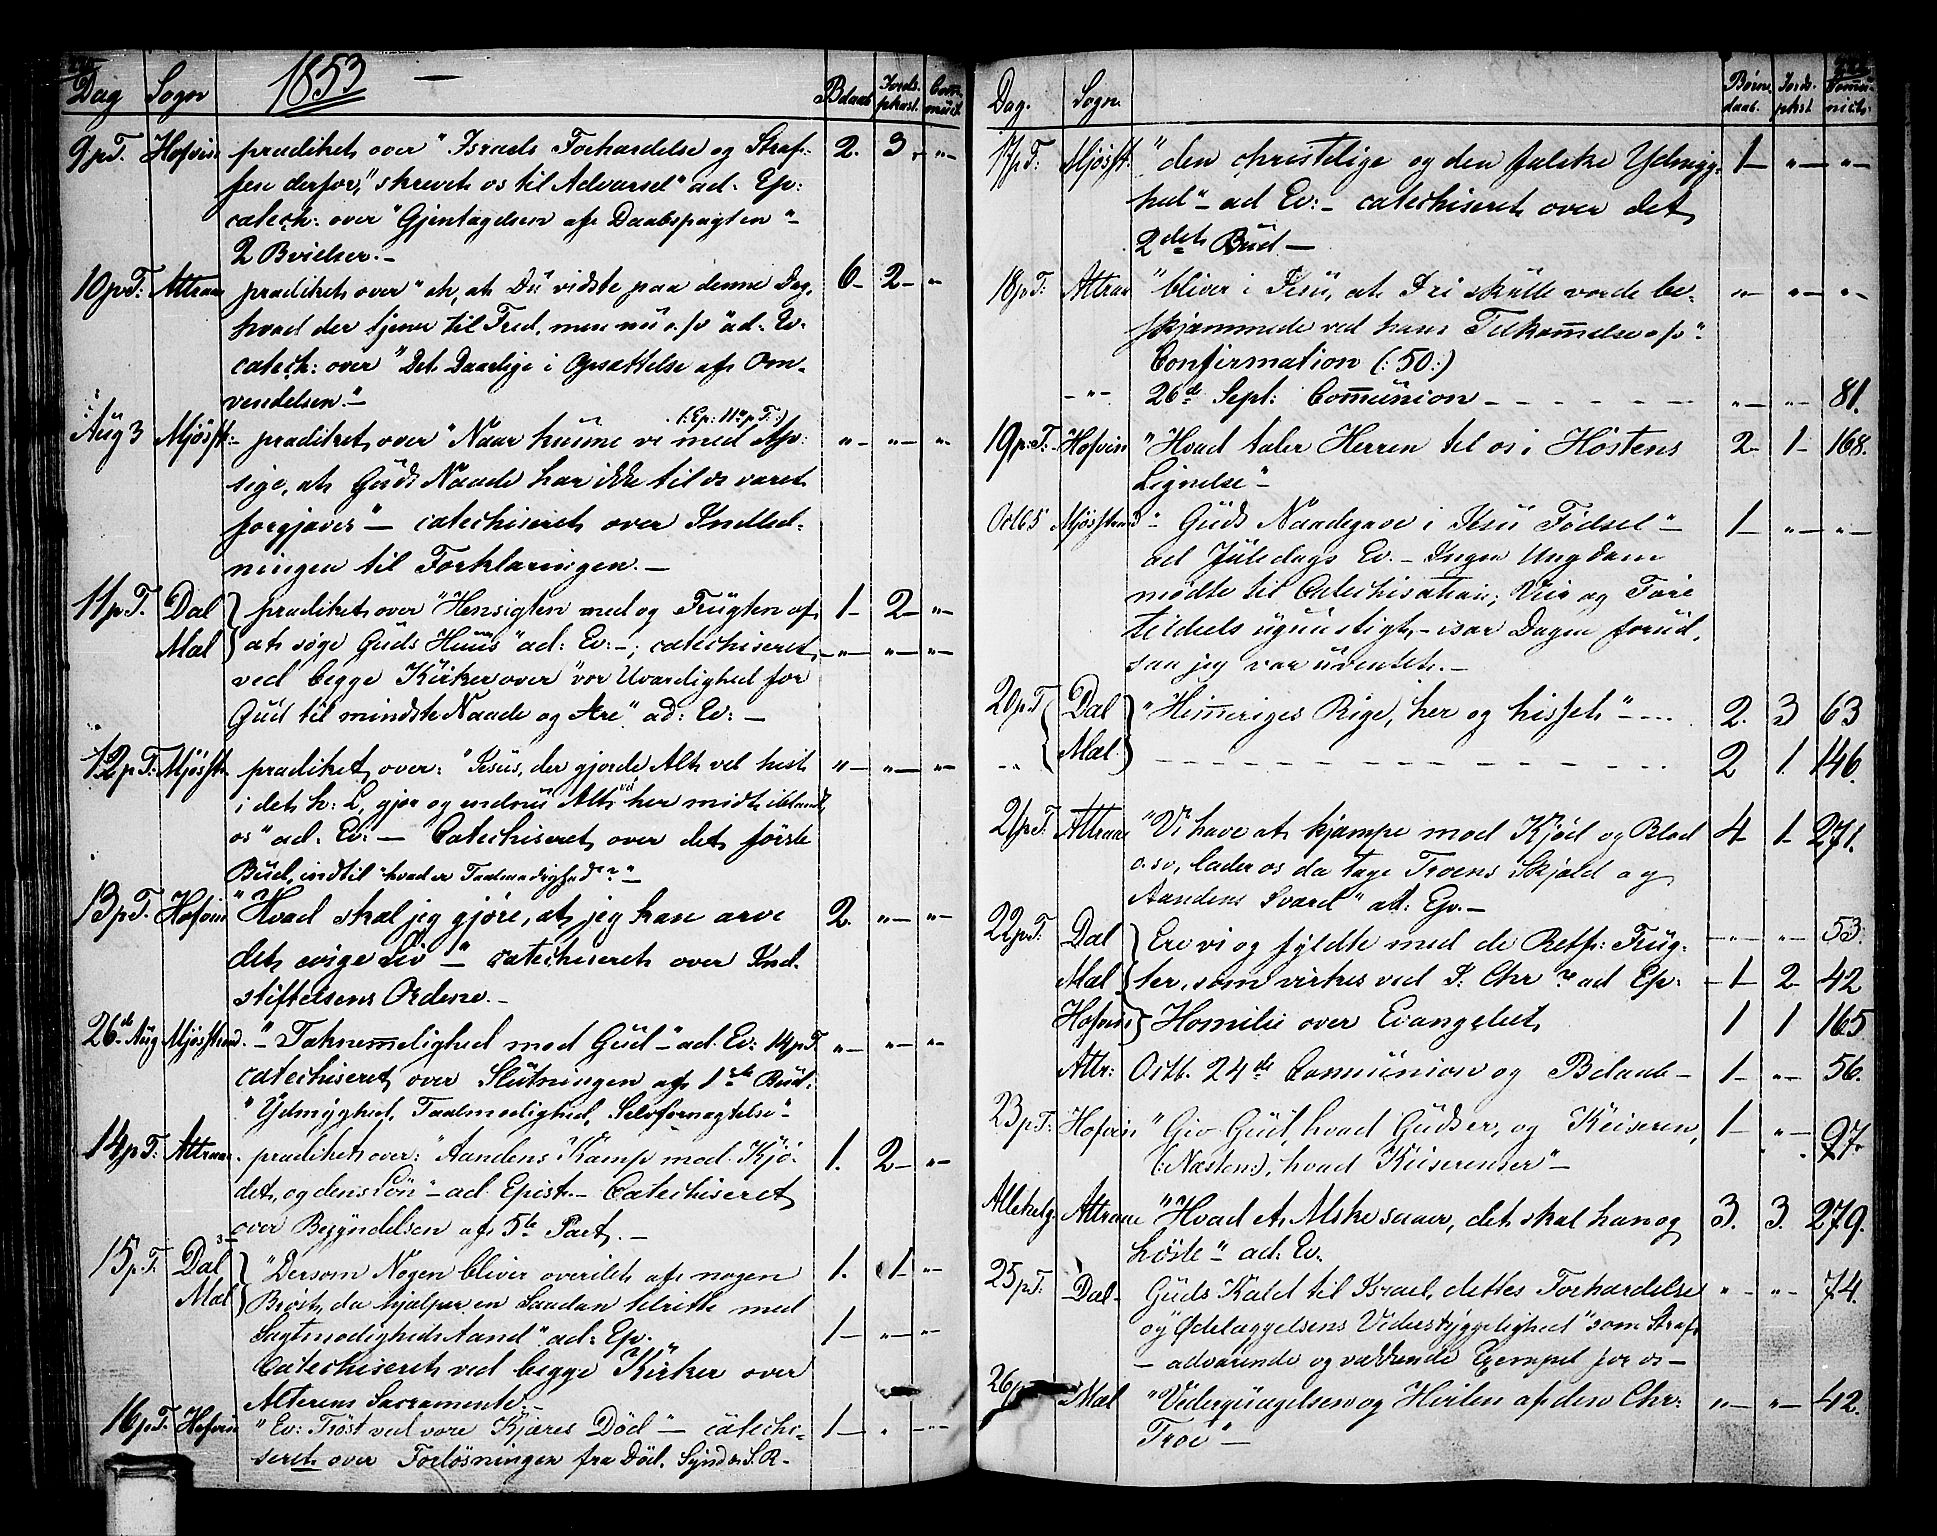 Dag Sogn 1853 — Bdaab Jords- phast. Com- mūit.
9 p T. Hofvin prædiket over "Israels Forhærdelse og Straf- 2. 3. "—
fen derfor," skrevet os til Advarsel" ad. Ep:
catech: over "Gjentagelsen af Daabspagten"
2 Bvielser.—
10 p. T. Attraae prædiket over "ak, at Dū vidste paa denne Dag, 6— 2— "
hvad der tjener til Fred, men nū o.s.v" ad: Ev.
catech: over "Det Daarlige i Opsættelse af Om-
vendelsen."—
(: Ep: 11 p T:)
Aūg 3 Mjösst:— prædiket over "Naar kūnne vi med Apo- "— "— "—
sige, at Gūds Naade har ikke til os været
forgjæves" — catechiseret over Indled-
ningen til Forklaringen.—
11 p. T. Dal prædiket over "Hensigten med og Frūgten af 1— 2— "—
Mæl at søge Gūds Hūūs" ad: Ev:—; catechiseret "— "— "—
ved begge Kirker over "vor Uværdighed for
Gūd til mindste Naade og Ære" ad: Ev:—
12 p T: Mjösst. prædiket over: "Jesus, der gjorde Alt vel hist "— "— "—
i det h: L, gjør og endnū Alt vel her midt iblandt
os" ad: Ev:— Catechiseret over det første
Būd, indtil "hvad er Taalmodighed?"—
13 p T. Hofvin "Hvad skal jeg gjøre, at jeg kan arve 2. "— "—
det evige Liv"— catechiseret over Ind-
stiftelsens Ordene.—
26 de Aūg Mjösstrand. "Taknemelighed mod Gūd" ad. Ev: 14 p T. "— "— "—
catechiseret over Slūtningen af 1ste Būd.
"Ydmyghed, Taalmodighed, Selvfornægtelse"—
14 p T: Attraae. prædiket over: "Aandens Kamp mod Kjø- 1. 2— "—
det, og dens Lön"— ad. Epist.— Catechiseret
over Begyndelsen af 5te Part.—
15 p. T. Dal "Dersom Nogen bliver overilet af nogen 1. 1— "—
Mæl Bröst, da hjælper en Saadan tilrette med
Sagtmodigheds Aand" ad: Ep. 1— "— "—
Catechiseret ved begge Kirker over
Alterens Sacramente.—
16 p. T. Hofvin "Ev: Tröst ved vore Kjæres Död"— catechi- 1— " "—
seret over Forlösningen fra Död, Synd o: S. R—
Dag. Sogn. Børne daab. Jords- phst. Comū- nicts:
17 p T: Mjösst. "den christelige og den falske Ydmyg- 1— "— "—
hed"— ad Ev:— catechiseret over det
2det Būd—
18 p. T: Attraae "bliver i Jesū, at I ei skūlle vorde be- "— "— "—
skjæmmede ved hans Tilkomelse o.s.v"
Confirmation (: 50:)
— "— 26de Sept: Comūnion — — — — "— "— 81.
19 p. T. Hofvin "Hvad taler Herren til os i Höstens 2— 1— 168.
Lignelse"—
Octb 5 Mjösstrand "Gūds Naadegave i Jesū Födsel" 1— "— "—
ad Jūledags Ev.— Ingen Ungdom
mødte til Catechisation; Veir og Føre
tildeels ugūnstigt,— især Dagen forūd,
saa jeg var ūventet.—
20 p T Dal "Himeriges Rige, her og hisset"— 2. 3 63
" Mæl. — — — — 2 1. 146.
21 p. T. Attraae "Vi have at kjæmpe mod Kjöd og Blod 4— 1— 271.
o. sv, lader os da tage Troens Skjold og
Aandens Sværd" ad: Ep.—
22 p. T. Dal Ere vi og fyldte med de Retf: Frūg- "— "— 53.
Mæl ter, som virkes ved J. Chr? ad Ep: 1— 2— 42
Hofvin Homilie over Evangeliet, 1 1 165
Attr: Octb. 24de Comūnion og Bdaab— 1— "— 56.
23 p. T. Hofvin "Giv Gūd, hvad Gūds er, og Keiseren, 1— "— 97.
(: Næsten:), hvad Keiserens er"—
Allehelg. Attraae "Hvad et Mske saaer, det skal han og 3. 3. 279.
höste" ad: Ev.
25 p. T. Dal— Gūds Kald til Israel, dettes Forhærdelse "— "— 74.
og Ødelæggelsens Vederstyggelighed" som Straf
— advarende og vækkende Exempel for os—
26 p. Mæl "Vederqvægelsen og Hvilen af den Chr. "— "— 42.
Troe"—